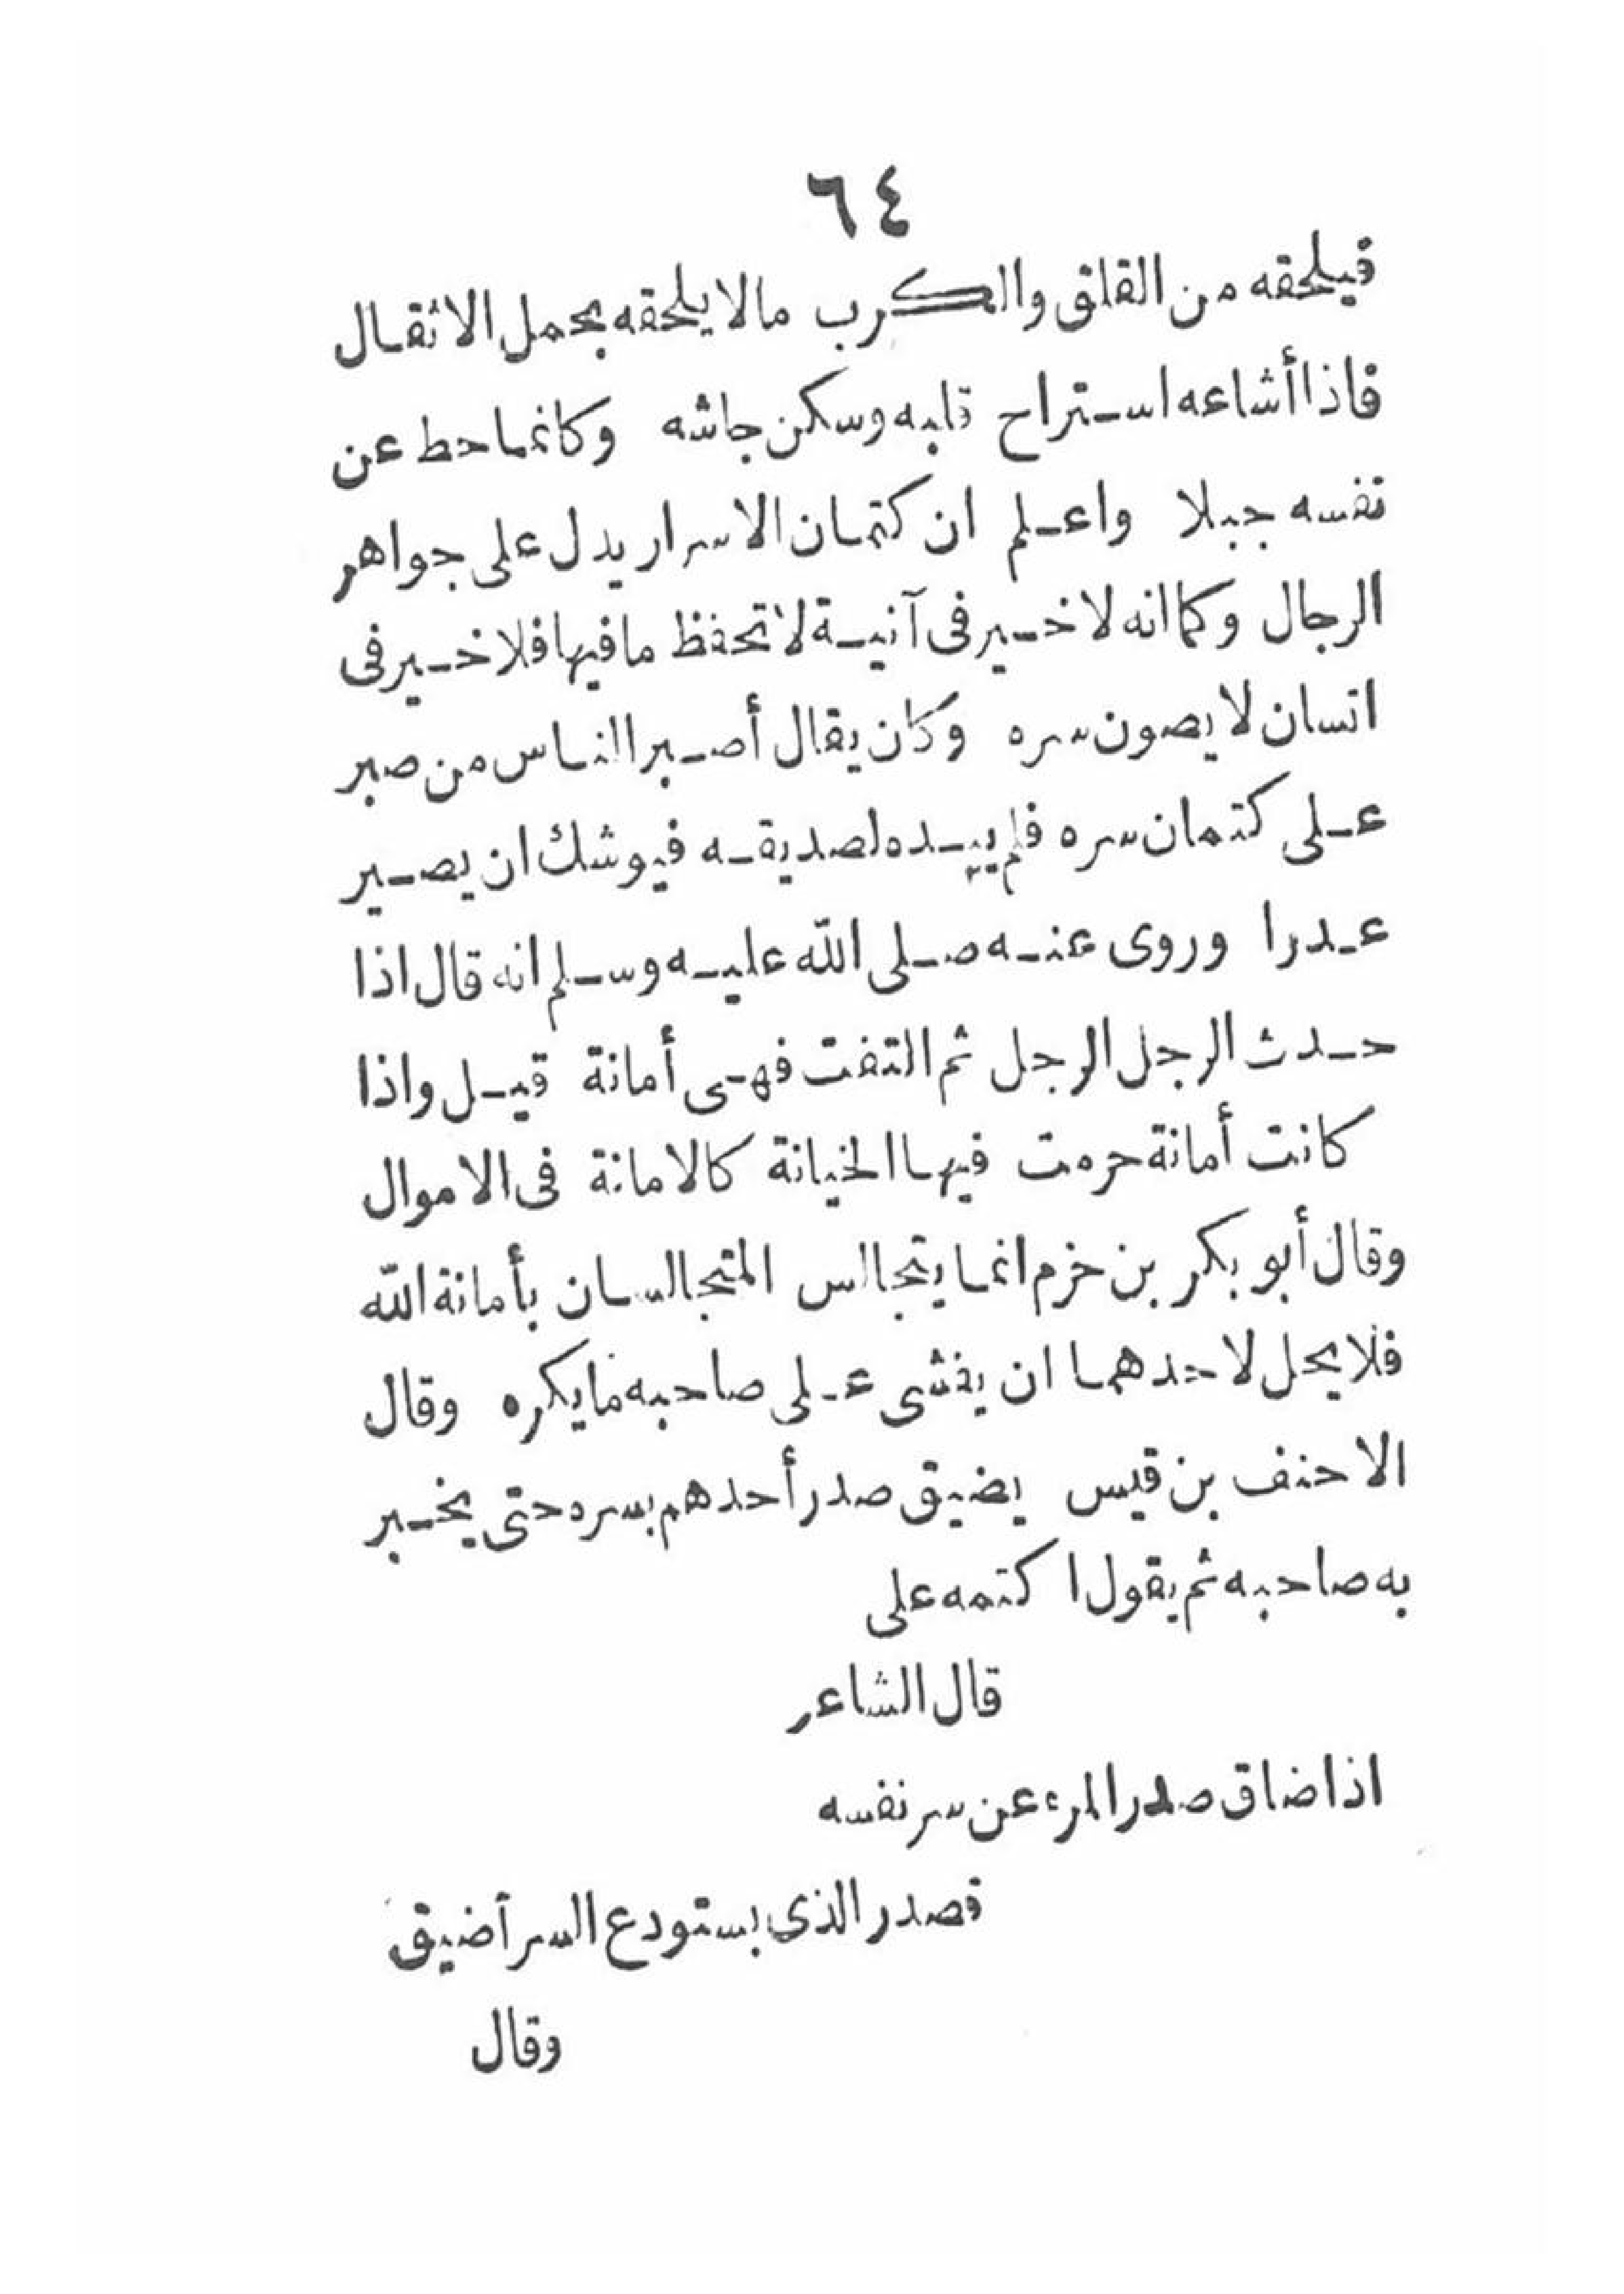 ٦٤
فيلحقه من القلق والكرب مالا يلحقه بحمل الاثقال
فاذا أشاعه استراح قلبه وسكن جاشه وكانما حط عن
نفسه جبلا واعلم ان كتمان الاسرار يدل على جواهر
الرجال وكما انه لا خير فى آنية لا تحفظ ما فيها فلا خير فى
انسان لا يصون سره وكان يقال أصبر الناس من صبر
على كتمان سره فلم يبده لصديقه فيوشك ان يصير
عدرا وروى عنه صلى الله عليه وسلم انه قال اذا
حدث الرجل الرجل ثم التفت فهى أمانة قيل واذا
كانت أمانة حرمت فيها الخيانة كالامانة فى الاموال
وقال أبو بكر بن خزم انما يتجالس المتجالسان بأمانة الله
فلا يحل لاحدهما ان يفشى على صاحبه ما يكره وقال
الاحنف بن قيس يضيق صدر أحدهم بسره حتى يخبر
به صاحبه ثم يقول اكتمه على
قال الشاعر
اذا ضاق صدر المرء عن سر نفسه
فصدر الذى يستودع السر أضيق
وقال